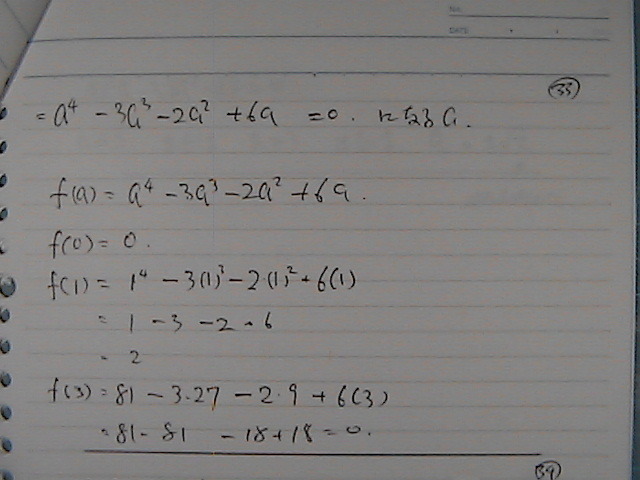 No.
DATE
33
= a⁴ - 3a³ - 2a² + 6a = 0. になる a.
f(a) = a⁴ - 3a³ - 2a² + 6a.
f(0) = 0.
f(1) = 1⁴ - 3(1)³ - 2・(1)² + 6(1)
= 1 - 3 - 2 + 6
= 2
f(3) = 81 - 3・27 - 2・9 + 6(3)
= 81 - 81 - 18 + 18 = 0.